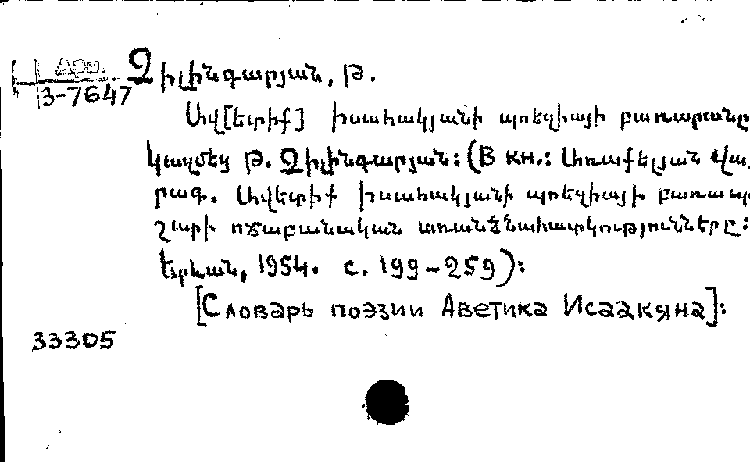 Арм.
3-7647
Չիլինգարյան, Թ.
Ավ[ետիք] Իսահակյանի պոեզիայի բառարանը
կազմեց Թ. Չիլինգարյան: (В кн.: Առաքելյան Վա-
րագ. Ավետիք Իսահակյանի պոեզիայի բառապա-
շարի ոճաբանական առանձնահատկությունները:
Երևան, 1954. с. 199-259):
[Словарь поэзии Аветика Исаакяна]:
33305